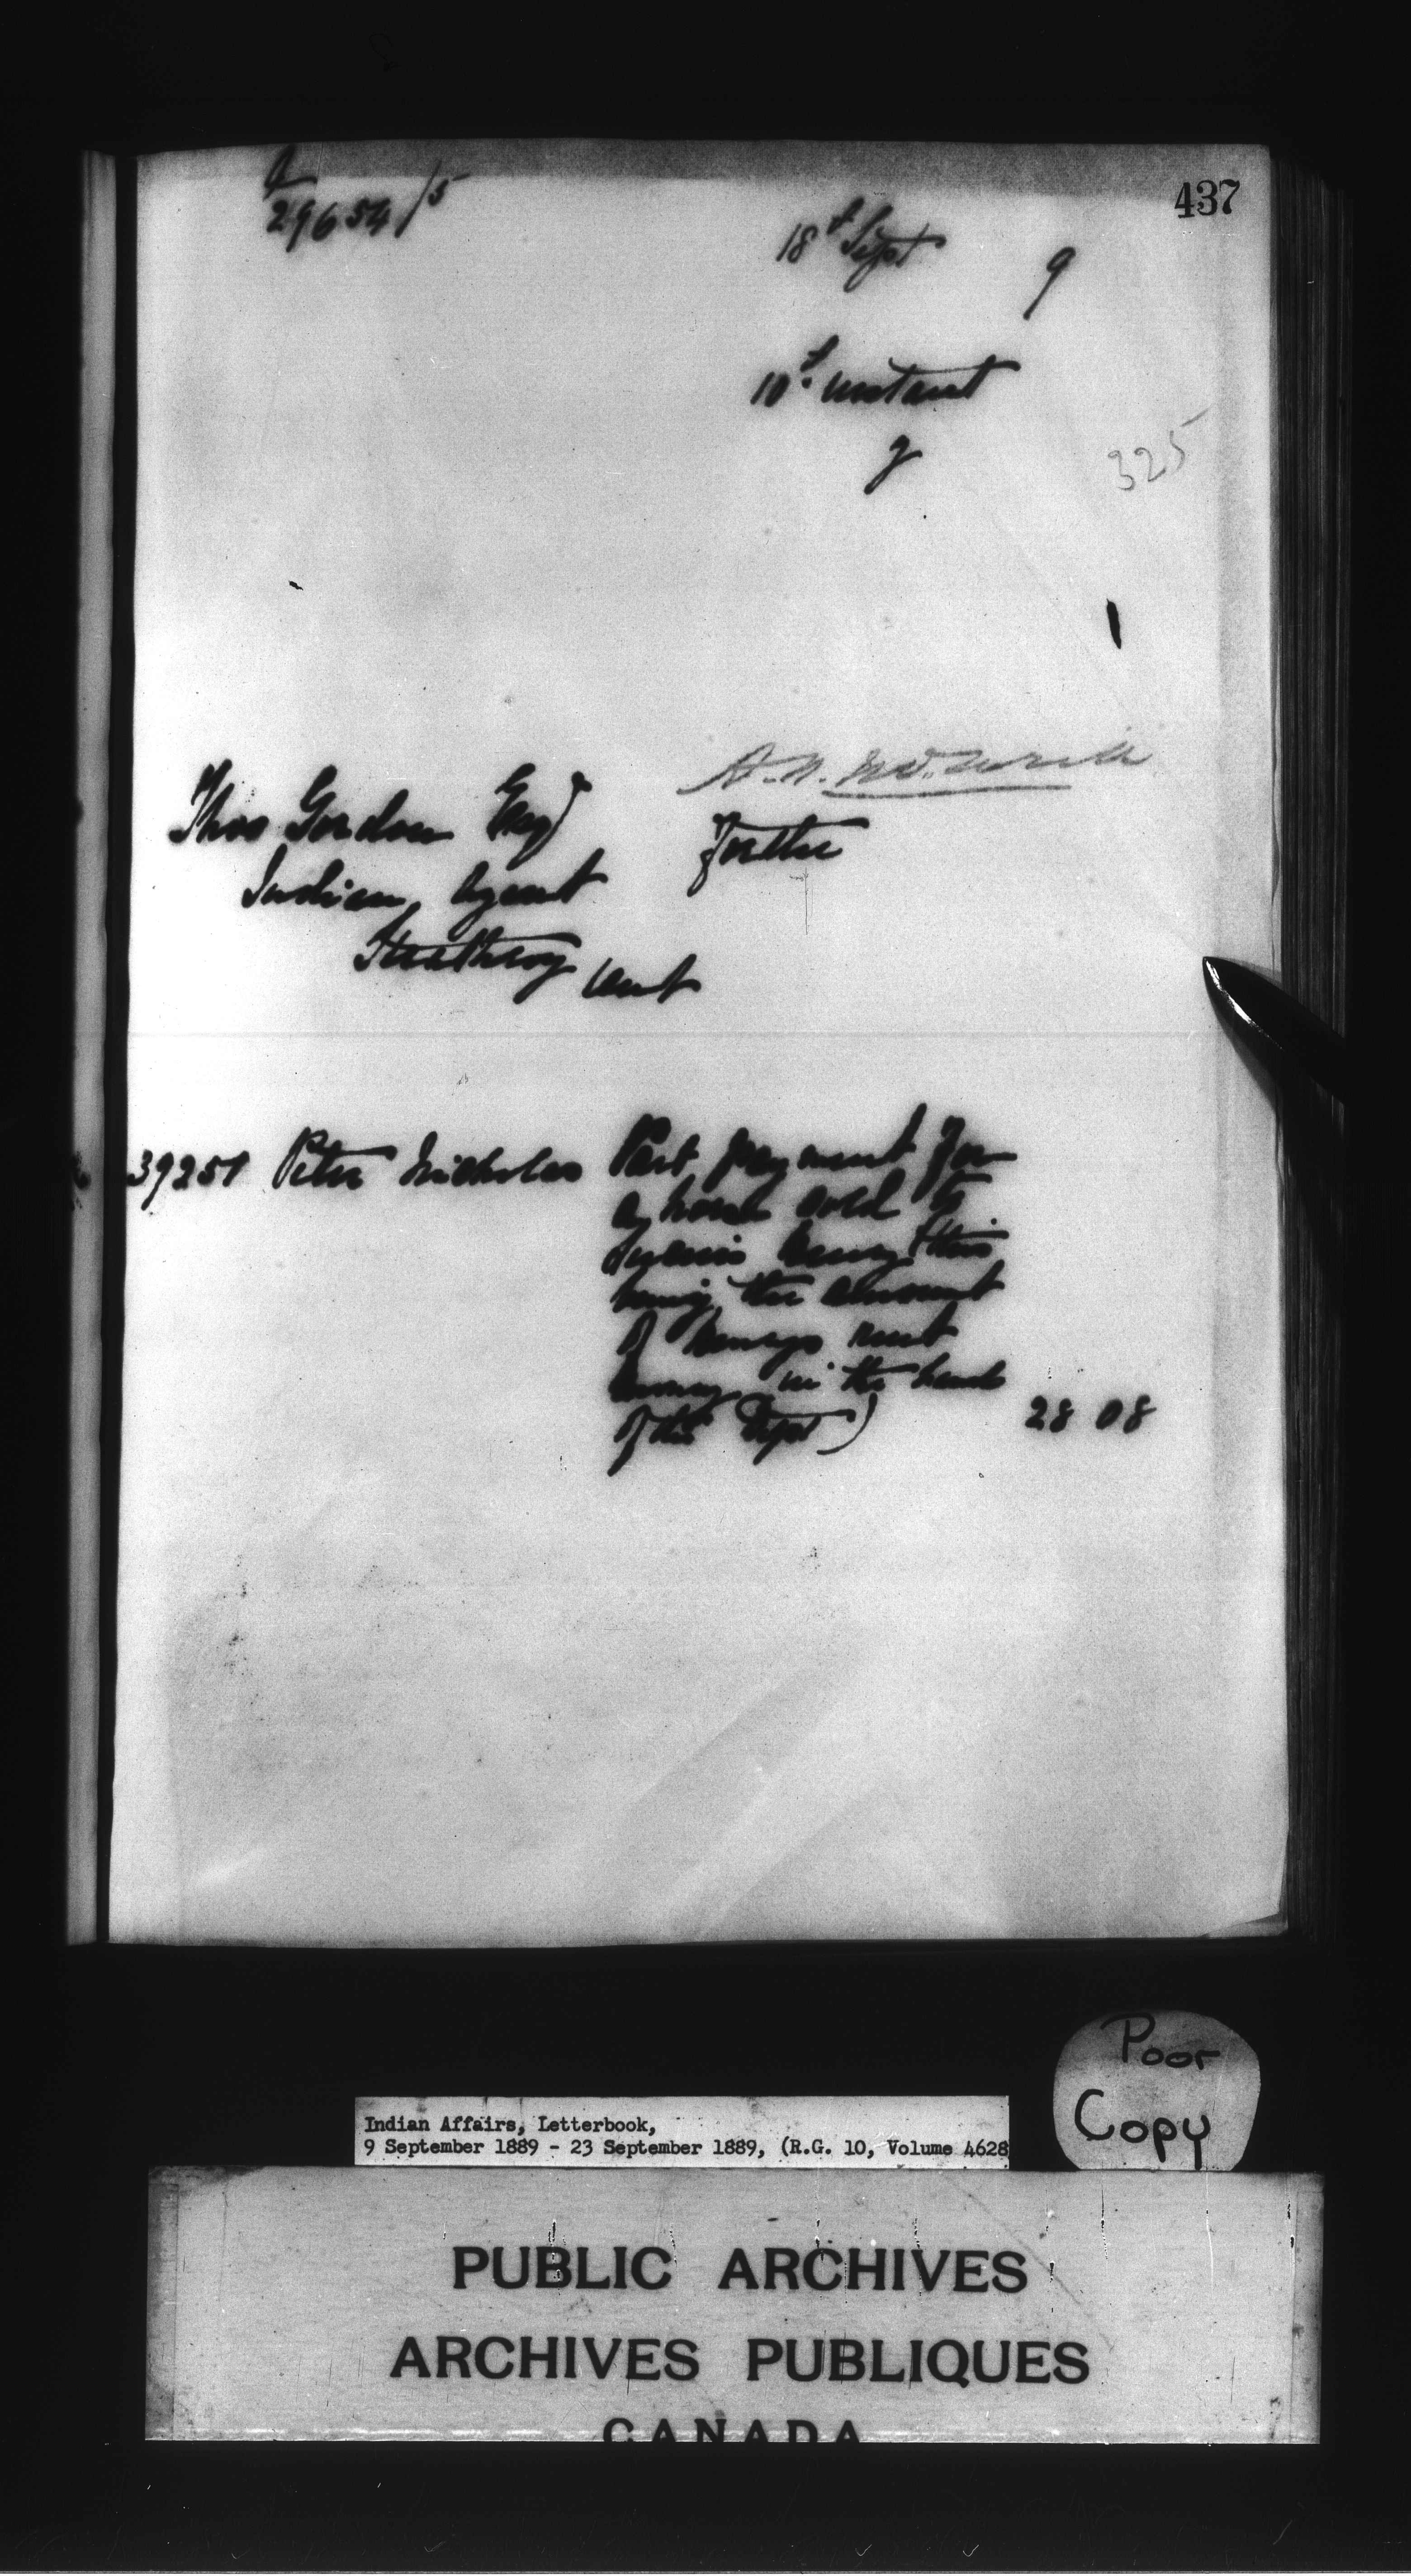 437
A
29654/5
18th Sept 9
10th instant
325
A. N. McNeill
Thos Gordon Esqr
For the
Indian Agent
Strathroy Ont
39251 Peter Nicholas Part payment for
a horse sold to
Henry (this
being the amount
of Henrys rent
money in the hands
of the Dept) 28 08
Poor
Copy
Indian Affairs, Letterbook,
9 September 1889 - 23 September 1889, (R.G. 10, Volume 4628
PUBLIC ARCHIVES
ARCHIVES PUBLIQUES
CANADA